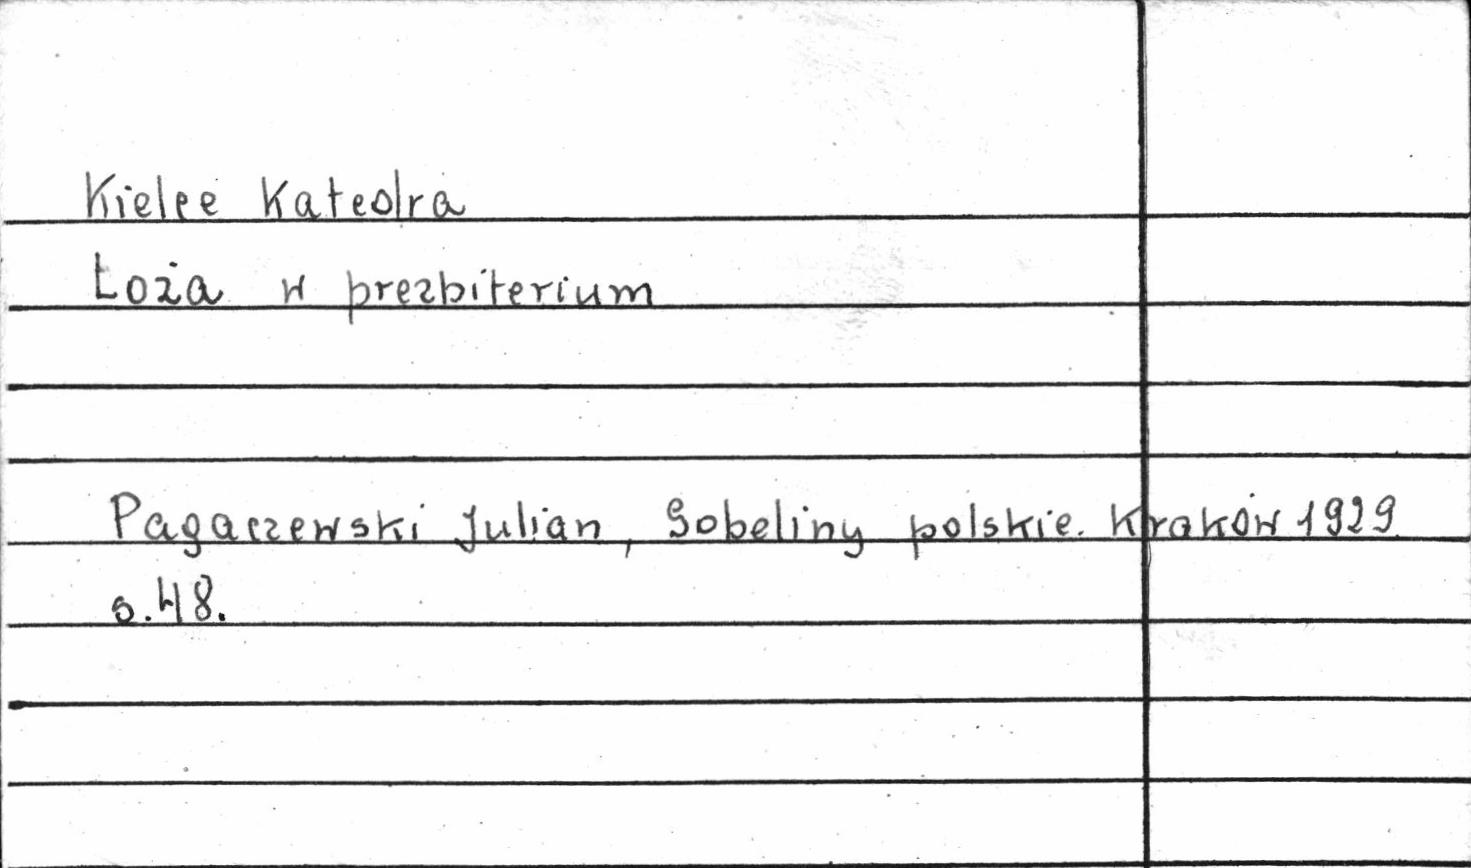 Kielce Katedra
Loża w prezbiterium
Pagaczewski Julian, Gobeliny polskie. Kraków 1929.
s. 48.